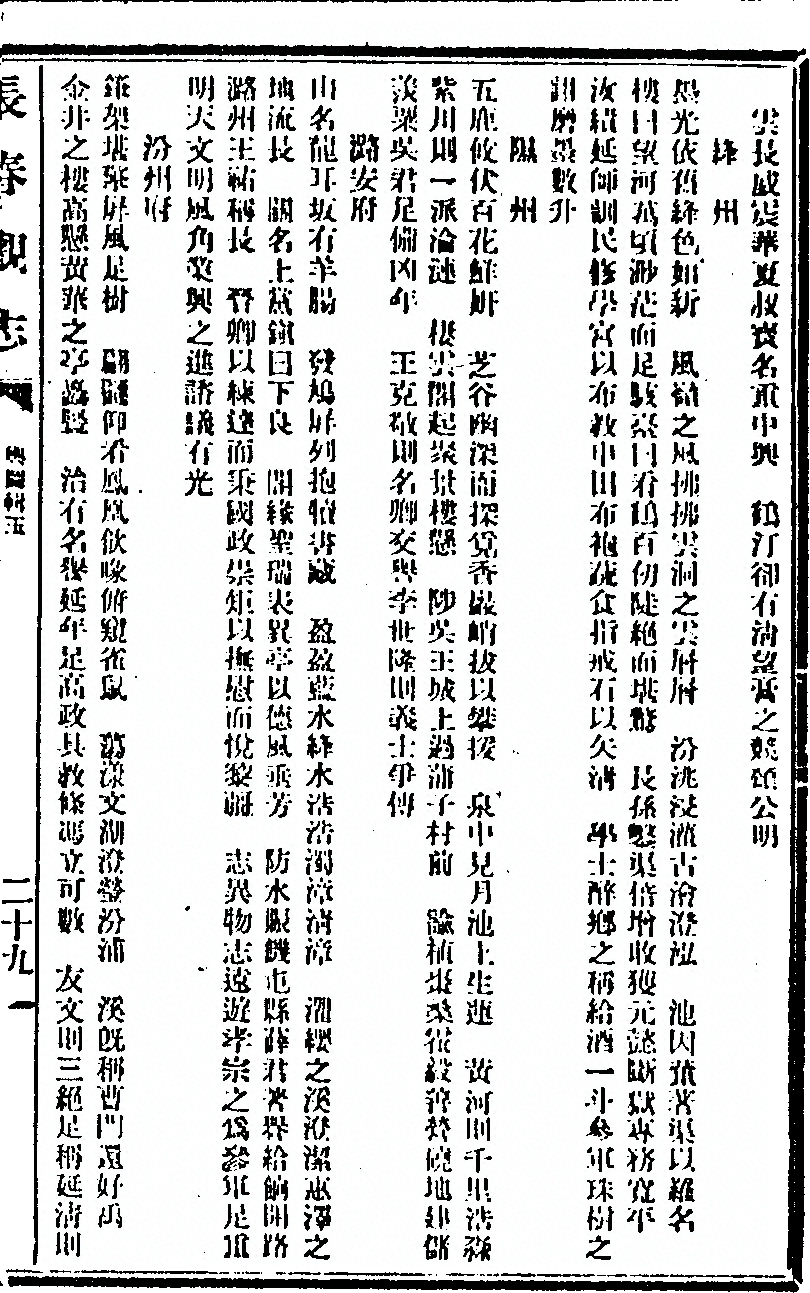 雲長威震華夏叔寶名重中興　鶴汀卻有清望賓之競頌公明
絳　州
晃光依舊絳色如新　風嶺之風拂拂雲洞之雲層層　汾洮浸灌古滄澄泓　池因齊著渠以羅名
樓曰望河萬頃渺茫而足駭臺曰看鶴百仞陡絕而堪驚　長孫鑿渠倍增收穫元懿斷獄專務寬平
汝績延師訓民修學宮以布教申田布袍蔬食指戒石以矢清　學士醉鄉之稱給酒一斗參軍珠樹之
詡磨墨數升
隰　州
五鹿攸伏百花鮮妍　芝谷幽深而探覓香巖峭拔以攀援　泉中見月池上生蓮　黃河則千里浩淼
紫川則一派淪漣　樓雲閣起聚景樓懸　陟吳王城上過蒲子村前　諭植棗桑從毅善於磽地建儲
淡粟吳君足備凶年　王克敬則名卿交譽李世隆則義士爭傳
潞安府
山名龍耳坂有羊腸　發鳩屏列抱犢書藏　盈盈藍水絳水浩浩濁漳清漳　濯纓之溪洨潔惠澤之
地流長　關名上黨鎮曰下良　閣緣聖瑞表異亭以德風垂芳　防水賑饑屯縣薛君著界給餉開路
潞州王祐稱長　晉卿以練達而秉國政崇矩以撫慰而悅黎甿　志異物志遠遊孝宗之為參軍足重
明天文明風角榮興之進諮議有光
汾州府
鋒架堪聚屏風是樹　翩翩仰看鳳凰飲喙俯窺雀鼠　蕩漾文湖澄瑩汾浦　溪既稱曹門還好禹
金井之樓高懸黃華之亭矗豎　治有名譽延年足高政具教條馮立可數　友文則三絕足稱延清則
長春觀志
卷四
輿圖輯五
二十九